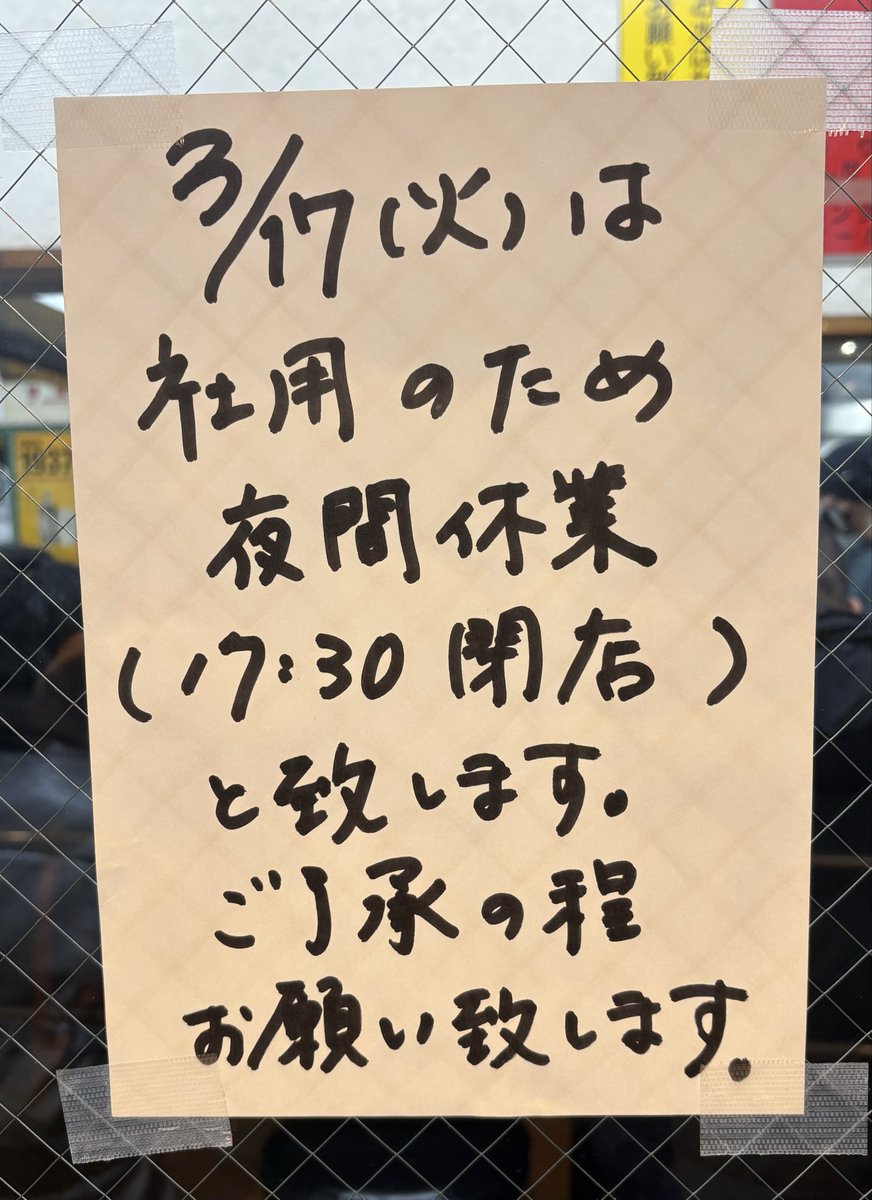 3/17(火)は
社用のため
夜間休業
(17:30 閉店)
と致します。
ご了承の程
お願い致します.
1537